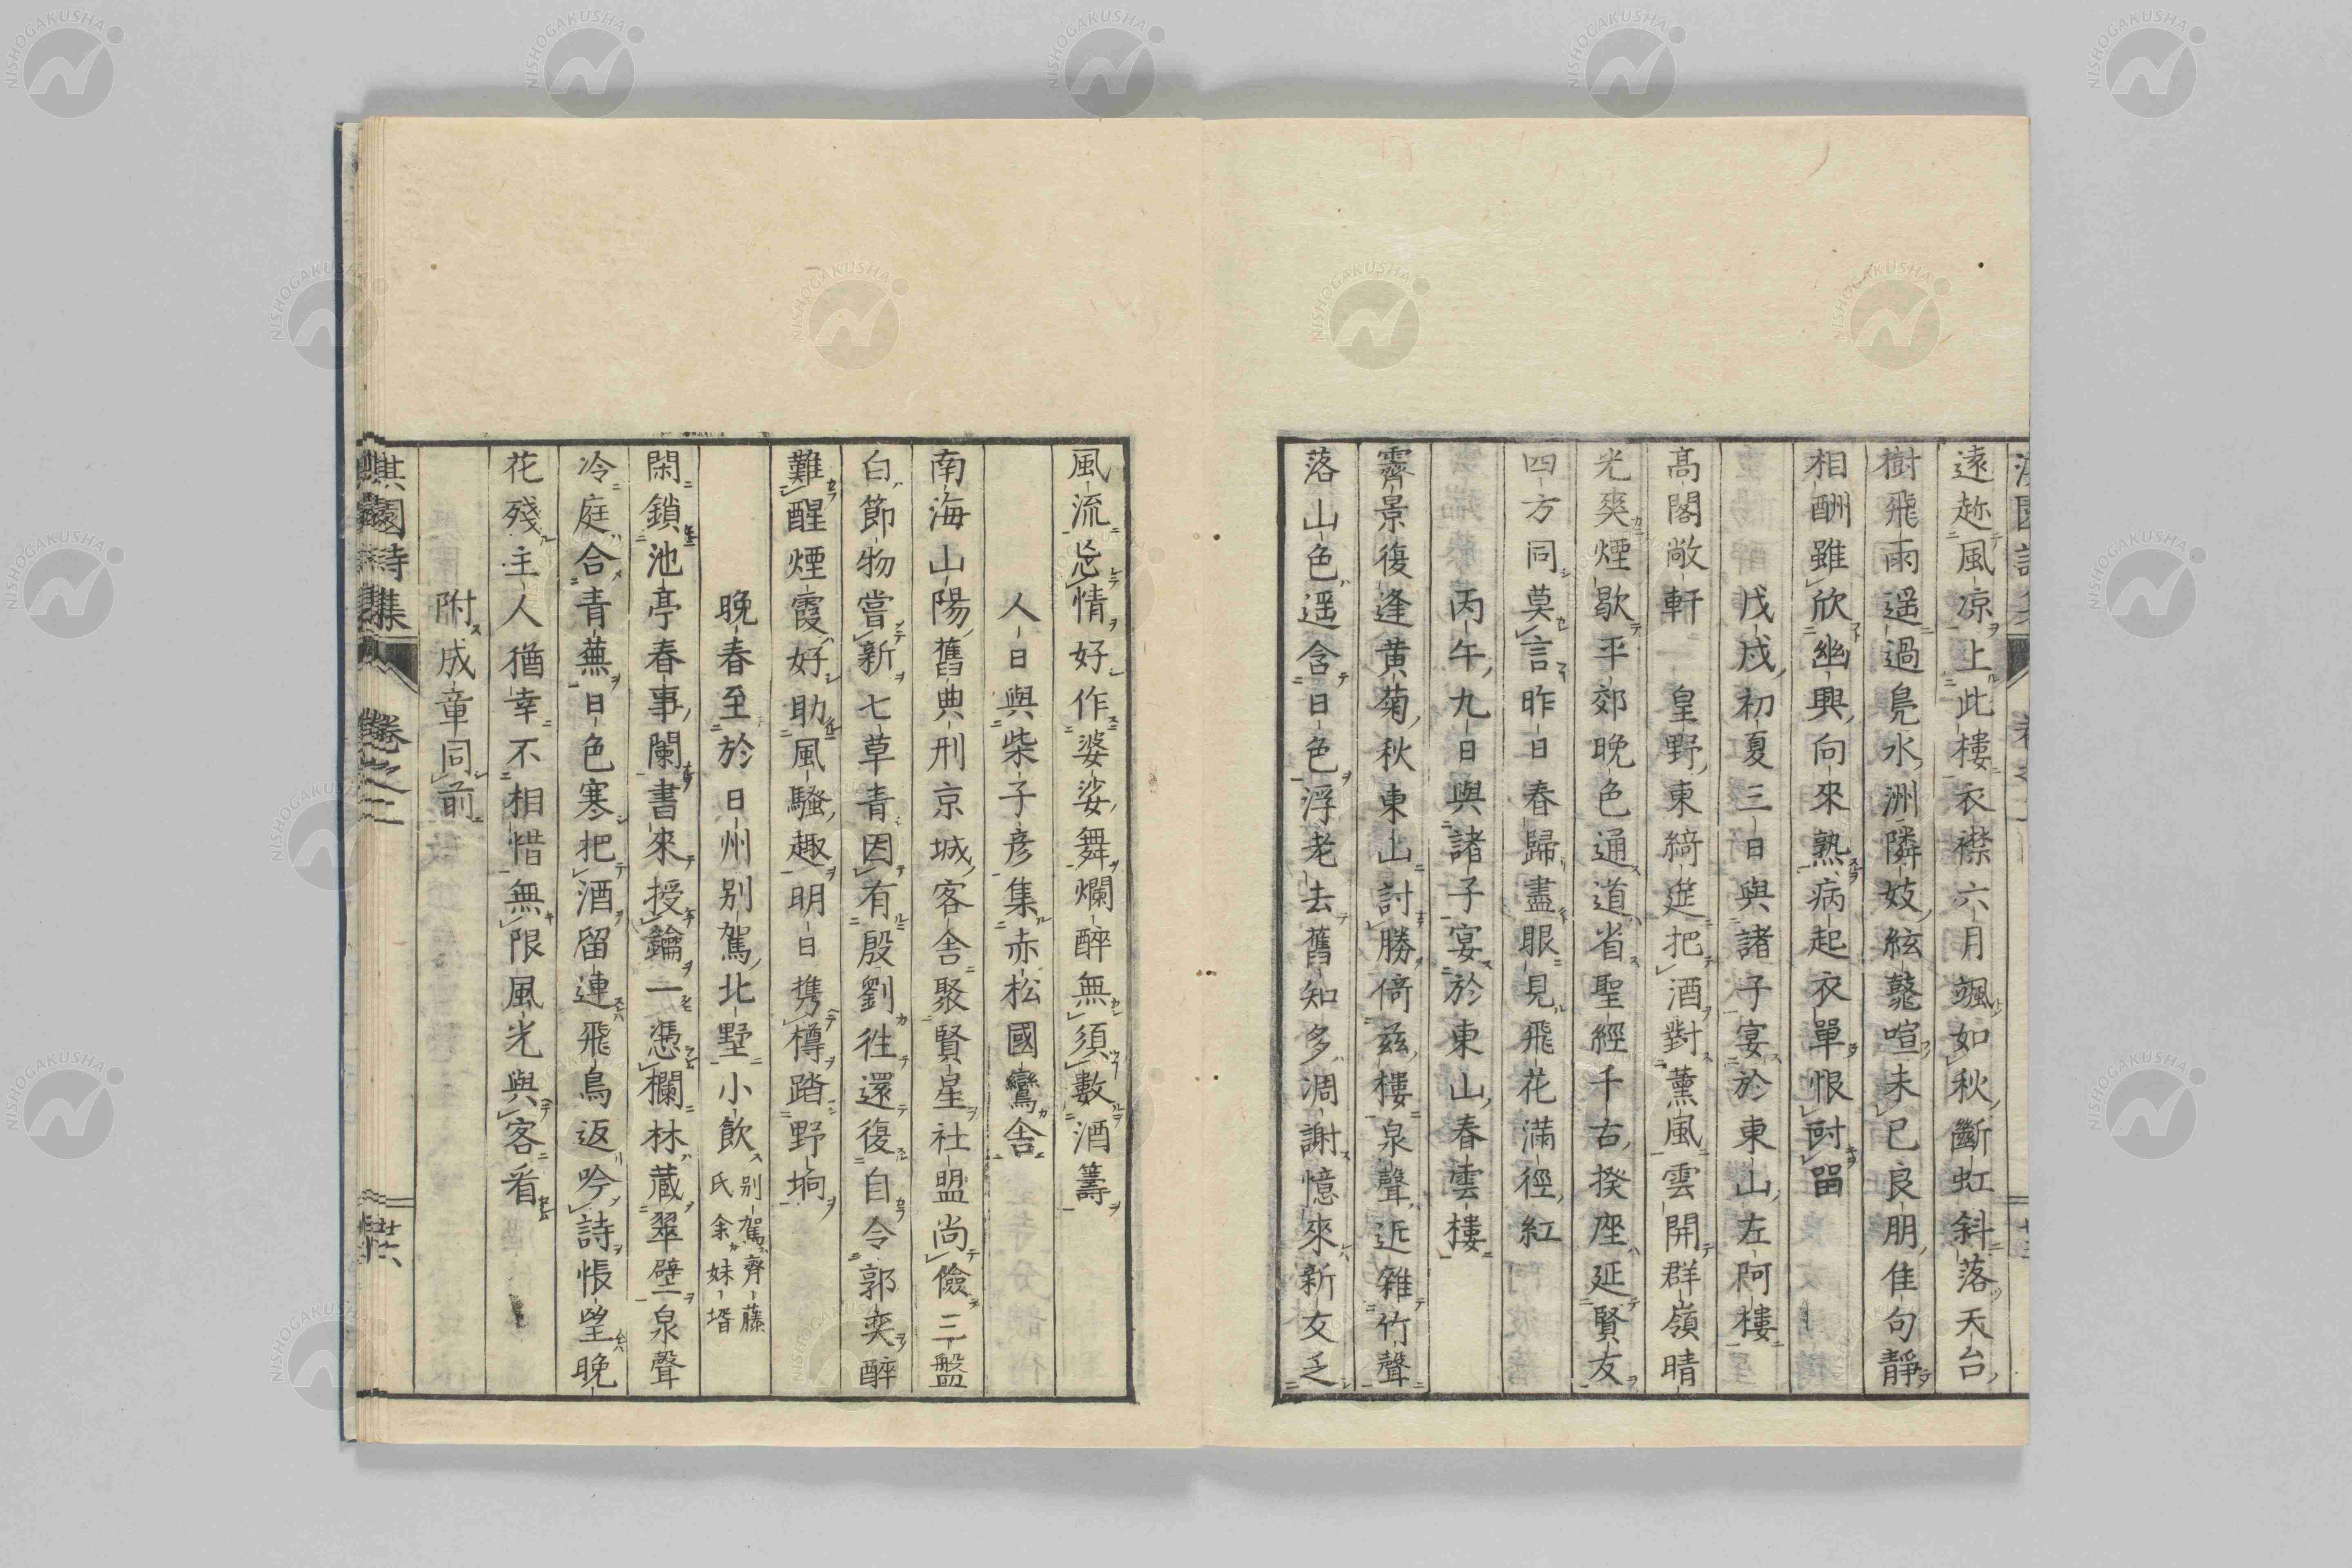 遠趂風凉上此樓衣襟六月颯如秋斷虹斜落天台
樹飛雨遥過鳧水洲隣妓絃鼗喧未已良朋隹句靜
相酬雖欣幽興向來熟病起衣單恨尌畱
戊戌初夏三日與諸子宴於東山左阿樓
高閣敞軒皇野東綺筵把酒對薫風雲開群嶺晴
光爽煙歇平郊晩色通道省聖經千古揆座延賢友
四方同莫言昨日春歸盡眼見飛花滿徑紅
丙午九日與諸子宴於東山春雲樓
霽景復逢黄菊秋東山討勝倚茲樓泉聲近雜竹聲
落山色遥含日色浮老去舊知多凋謝憶來新友乏
風流忘情好作婆娑舞爛醉無須數酒籌
人日與柴子彦集赤松國鸞舎
南海山陽舊典刑京城客舎聚賢星社盟尚儉三盤
白節物嘗新七草青因有殷劉往還復自令郭奕醉
難醒煙霞好助風騷趣明日携樽踏野坰
晩春至於日州别駕北墅小飲
别駕齊藤
氏余妹壻
閑鎖池亭春事闌書來授鑰一憑欄林藏翠壁泉聲
冷庭合青蕪日色寒把酒留連飛鳥返吟詩悵望晩
花殘主人猶幸不相惜無限風光與客看
附成章同前
淇園詩集
卷之二
廿六
NISHOGAKUSHA